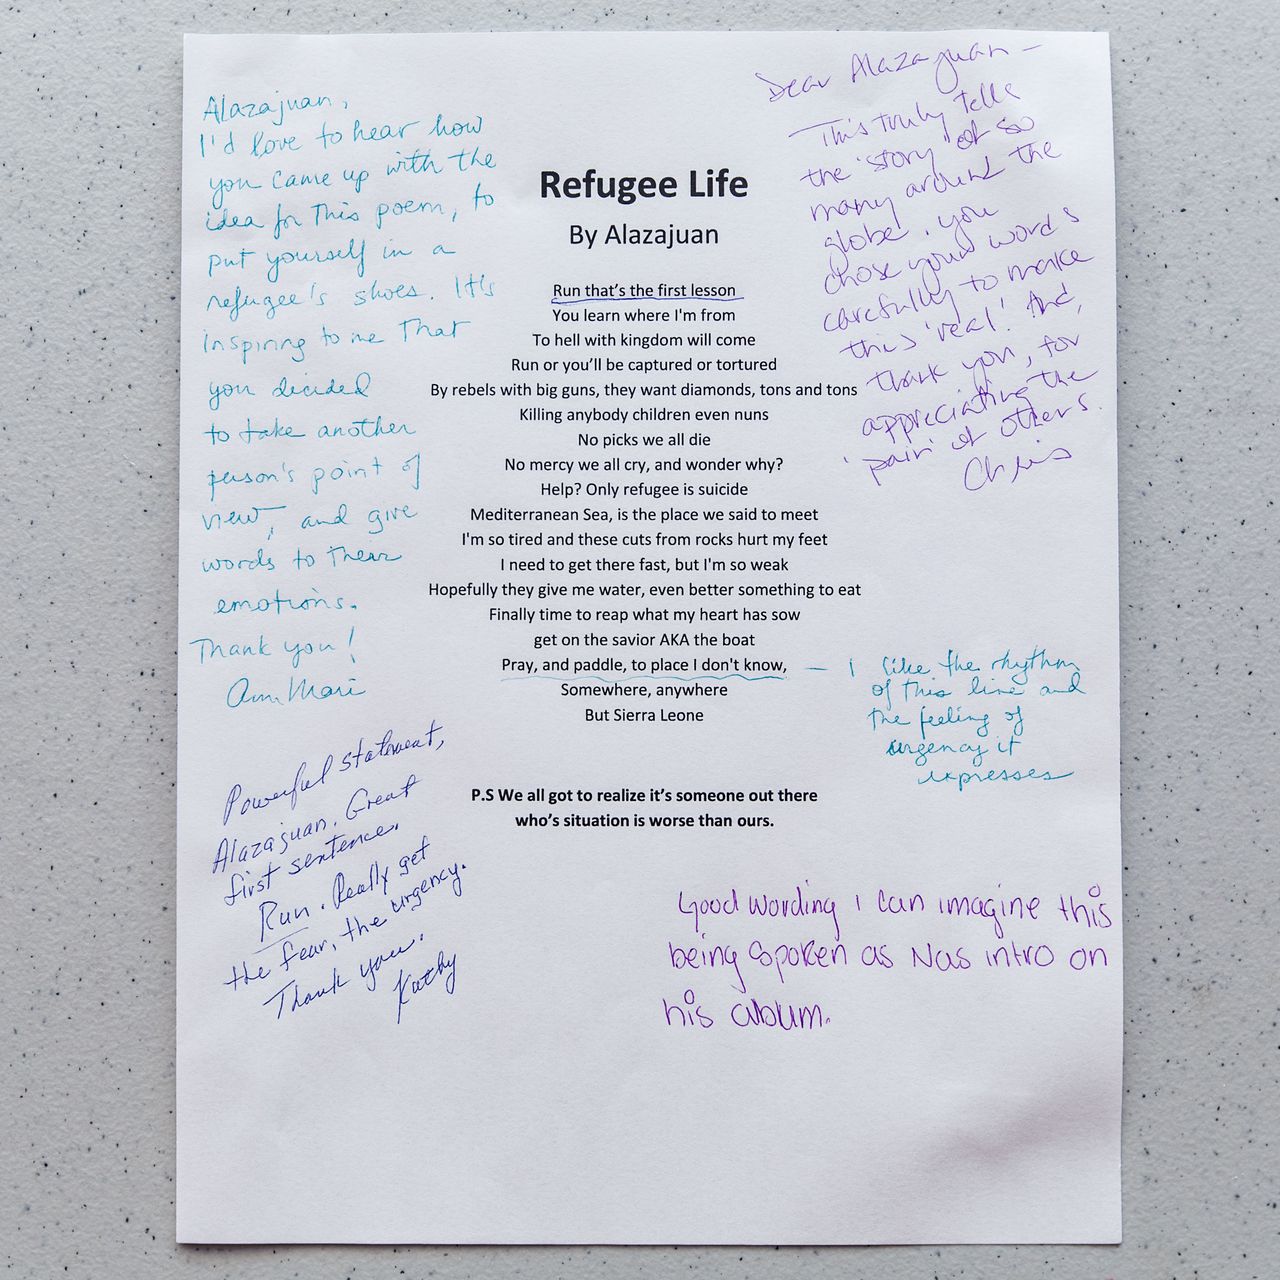 Alazajuan,
I'd love to hear how
you came up with the
idea for this poem, to
put yourself in a
refugee's shoes. It's
inspiring to me that
you decided
to take another
person's point of
view, and give
words to their
emotions.
Thank you!
Ann Marie
Dear Alazajuan —
This truly tells
the 'story' of so
many around the
globe. You
chose your words
carefully to make
this 'real'. And,
thank you, for
appreciating the
'pain' of others.
Chris
Refugee Life
By Alazajuan
Run that's the first lesson
You learn where I'm from
To hell with kingdom will come
Run or you'll be captured or tortured
By rebels with big guns, they want diamonds, tons and tons
Killing anybody children even nuns
No picks we all die
No mercy we all cry, and wonder why?
Help? Only refugee is suicide
Mediterranean Sea, is the place we said to meet
I'm so tired and these cuts from rocks hurt my feet
I need to get there fast, but I'm so weak
Hopefully they give me water, even better something to eat
Finally time to reap what my heart has sow
get on the savior AKA the boat
Pray, and paddle, to place I don't know,
Somewhere, anywhere
But Sierra Leone
— I like the rhythm
of this line and
the feeling of
urgency it
expresses
P.S We all got to realize it's someone out there
who's situation is worse than ours.
Powerful statement,
Alazajuan. Great
first sentence.
Run. Really get
the fear, the urgency.
Thank you.
Kathy
Good wording I can imagine this
being spoken as Nas intro on
his album.